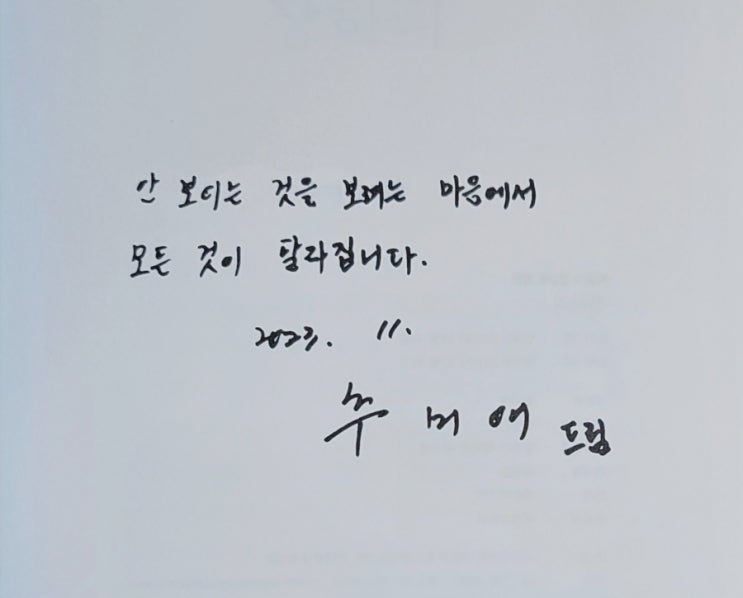 안 보이는 것을 보려는 마음에서
모든 것이 달라집니다.
2023. 11.
추미애 드림